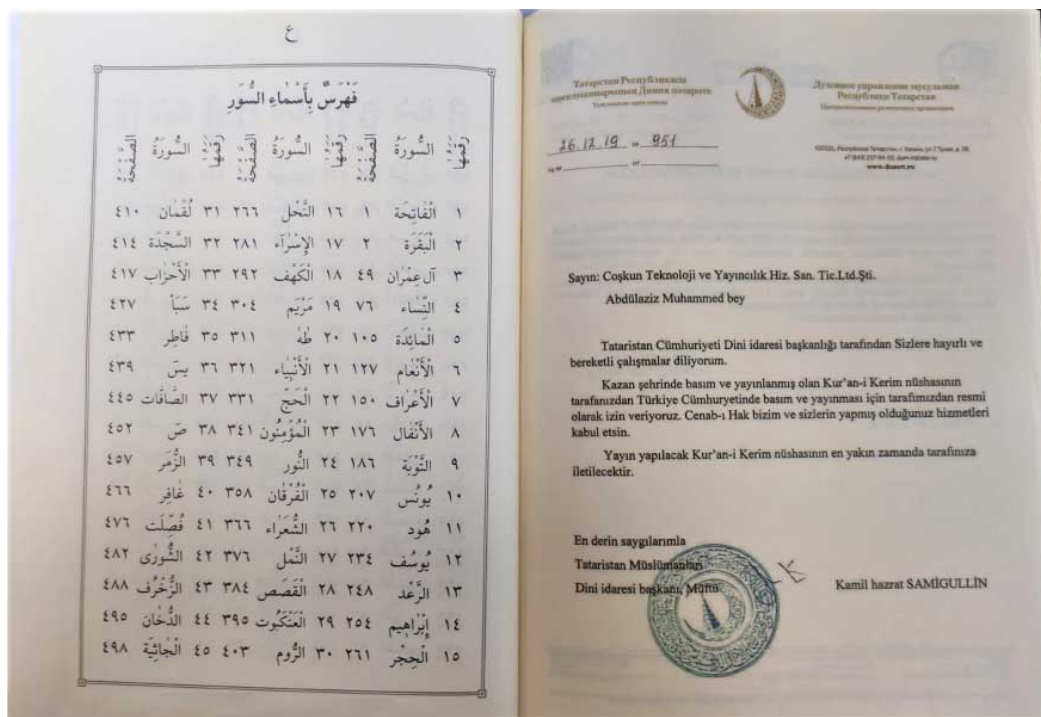 ع
فَهْرَسٌ بِأَسْمَاءِ السُّوَرِ
رَقْمُهَا السُّورَةُ الصَّفْحَةُ رَقْمُهَا السُّورَةُ الصَّفْحَةُ رَقْمُهَا السُّورَةُ الصَّفْحَةُ
١ الْفَاتِحَة ١ ١٦ النَّحْل ٢٦٦ ٣١ لُقْمَان ٤١٠
٢ الْبَقَرَة ٢ ١٧ الإِسْرَآء ٢٨١ ٣٢ السَّجْدَة ٤١٤
٣ آل عِمْرَان ٤٩ ١٨ الْكَهْف ٢٩٢ ٣٣ الْأَحْزَاب ٤١٧
٤ النِّسَاء ٧٦ ١٩ مَرْيَم ٣٠٤ ٣٤ سَبَأ ٤٢٧
٥ الْمَائِدَة ١٠٥ ٢٠ طٰهٰ ٣١١ ٣٥ فَاطِر ٤٣٣
٦ الْأَنْعَام ١٢٧ ٢١ الْأَنْبِيَاء ٣٢١ ٣٦ يسٓ ٤٣٩
٧ الْأَعْرَاف ١٥٠ ٢٢ الْحَجّ ٣٣١ ٣٧ الصَّافَّات ٤٤٥
٨ الْأَنْفَال ١٧٦ ٢٣ الْمُؤْمِنُون ٣٤١ ٣٨ صٓ ٤٥٢
٩ التَّوْبَة ١٨٦ ٢٤ النُّور ٣٤٩ ٣٩ الزُّمَر ٤٥٧
١٠ يُونُس ٢٠٧ ٢٥ الْفُرْقَان ٣٥٨ ٤٠ غَافِر ٤٦٦
١١ هُود ٢٢٠ ٢٦ الشُّعَرَاء ٣٦٦ ٤١ فُصِّلَت ٤٧٦
١٢ يُوسُف ٢٣٤ ٢٧ النَّمْل ٣٧٦ ٤٢ الشُّورٰى ٤٨٢
١٣ الرَّعْد ٢٤٨ ٢٨ الْقَصَص ٣٨٤ ٤٣ الزُّخْرُف ٤٨٨
١٤ إِبْرَاهِيم ٢٥٤ ٢٩ الْعَنْكَبُوت ٣٩٥ ٤٤ الدُّخَان ٤٩٥
١٥ الْحِجْر ٢٦١ ٣٠ الرُّوم ٤٠٣ ٤٥ الْجَاثِيَة ٤٩٨
Татарстан Республикасы
мөселманнарының Диния нәзарәте
Духовное управление мусульман
Республики Татарстан
Централизованная религиозная организация
26.12.19 № 951
на № от
www.dumrt.ru
Sayın: Coşkun Teknoloji ve Yayıncılık Hiz. San. Tic.Ltd.Şti.
Abdülaziz Muhammed bey
Tataristan Cümhuriyeti Dini idaresi başkanlığı tarafından Sizlere hayırlı ve
bereketli çalışmalar diliyorum.
Kazan şehrinde basım ve yayınlanmış olan Kur'an-i Kerim nüshasının
tarafınızdan Türkiye Cümhuryetinde basım ve yayınması için tarafımızdan resmi
olarak izin veriyoruz. Cenab-ı Hak bizim ve sizlerin yapmış olduğunuz hizmetleri
kabul etsin.
Yayın yapılacak Kur'an-i Kerim nüshasının en yakın zamanda tarafınıza
iletilecektir.
En derin saygılarımla
Tataristan Müslümanları
Dini idaresi başkanı, Müftü Kamil hazrat SAMİGULLİN